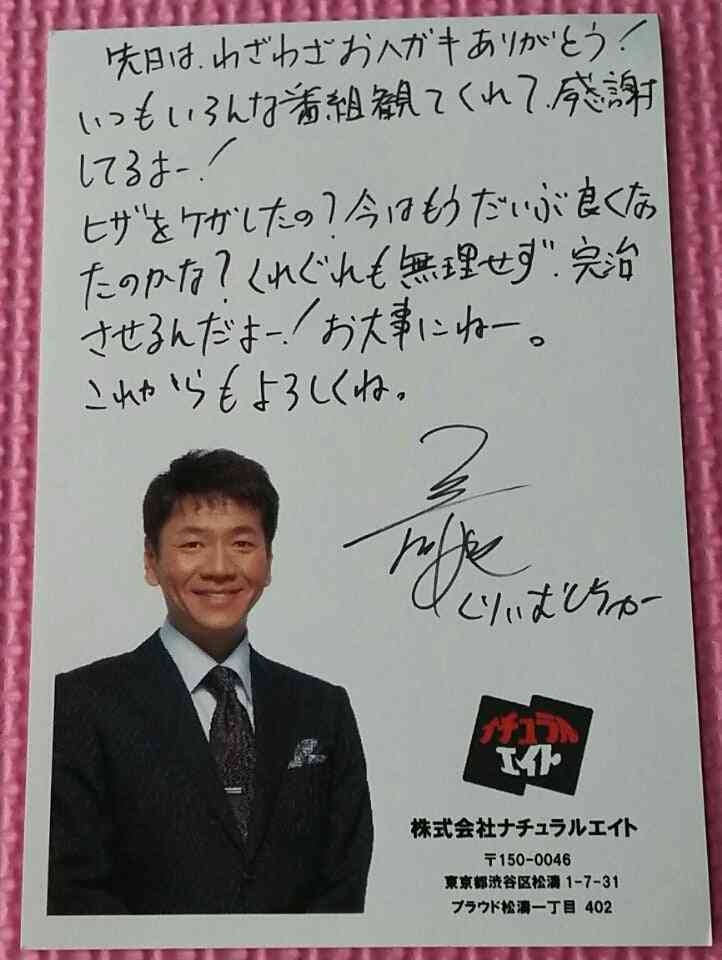 先日は、わざわざおハガキありがとう！
いつもいろんな番組観てくれて、感謝
してるよー！
ヒザをケガしたの？今はもうだいぶ良くなっ
たのかな？くれぐれも無理せず、完治
させるんだよー！お大事にねー。
これからもよろしくね。
くりぃむしちゅー
ナチュラル
エイト
株式会社ナチュラルエイト
〒150-0046
東京都渋谷区松濤1-7-31
プラウド松濤一丁目 402